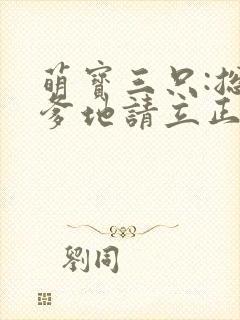 萌寶三只:總
爹地請立正
劉同